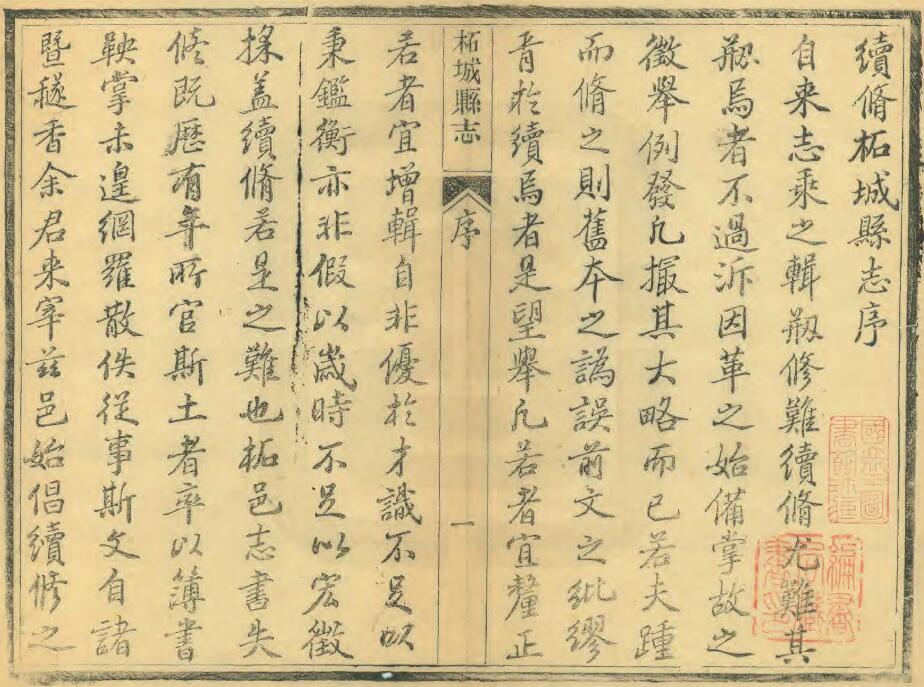 續脩柘城縣志序
自来志乘之輯剏修難續脩尤難其
剏焉者不過泝因革之始備掌故之
徵舉例發凢撮其大略而已若夫踵
而脩之則舊夲之譌誤前文之紕繆
胥於續焉者是望舉凢若者宜釐正
柘城縣志
序
一
若者宜增輯自非優於才識不足以
秉鑑衡亦非假以歲時不足以宏徵
採盖續脩若是之難也柘邑志書失
修既歷有年所官斯土者率以簿書
鞅掌未遑網羅散佚從事斯文自諸
暨𨗿香余君来宰兹邑始倡續修之